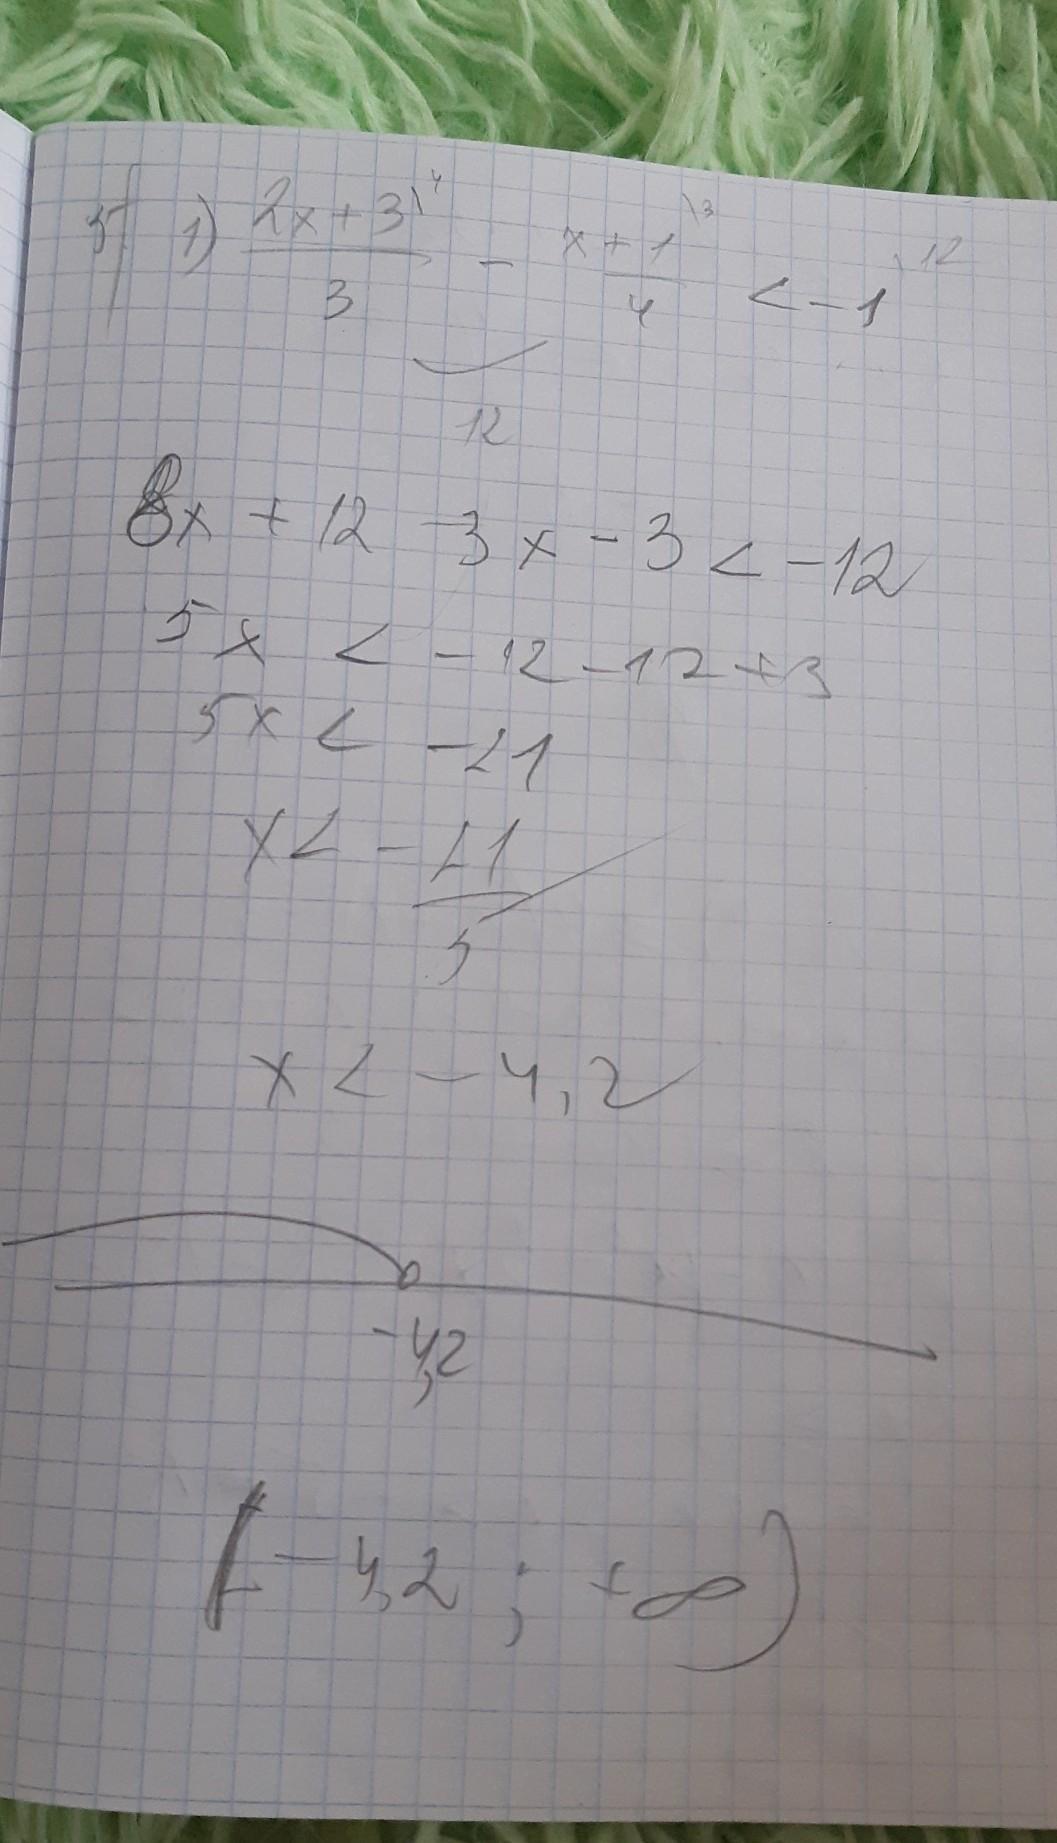 5 1) (2x + 3)/3 \4 - (x + 1)/4 \3 < -1 \12
12
8x + 12 - 3x - 3 < -12
5x < -12 - 12 + 3
5x < -21
x < -21/5
x < -4,2
-4,2
[-4,2 ; +∞)